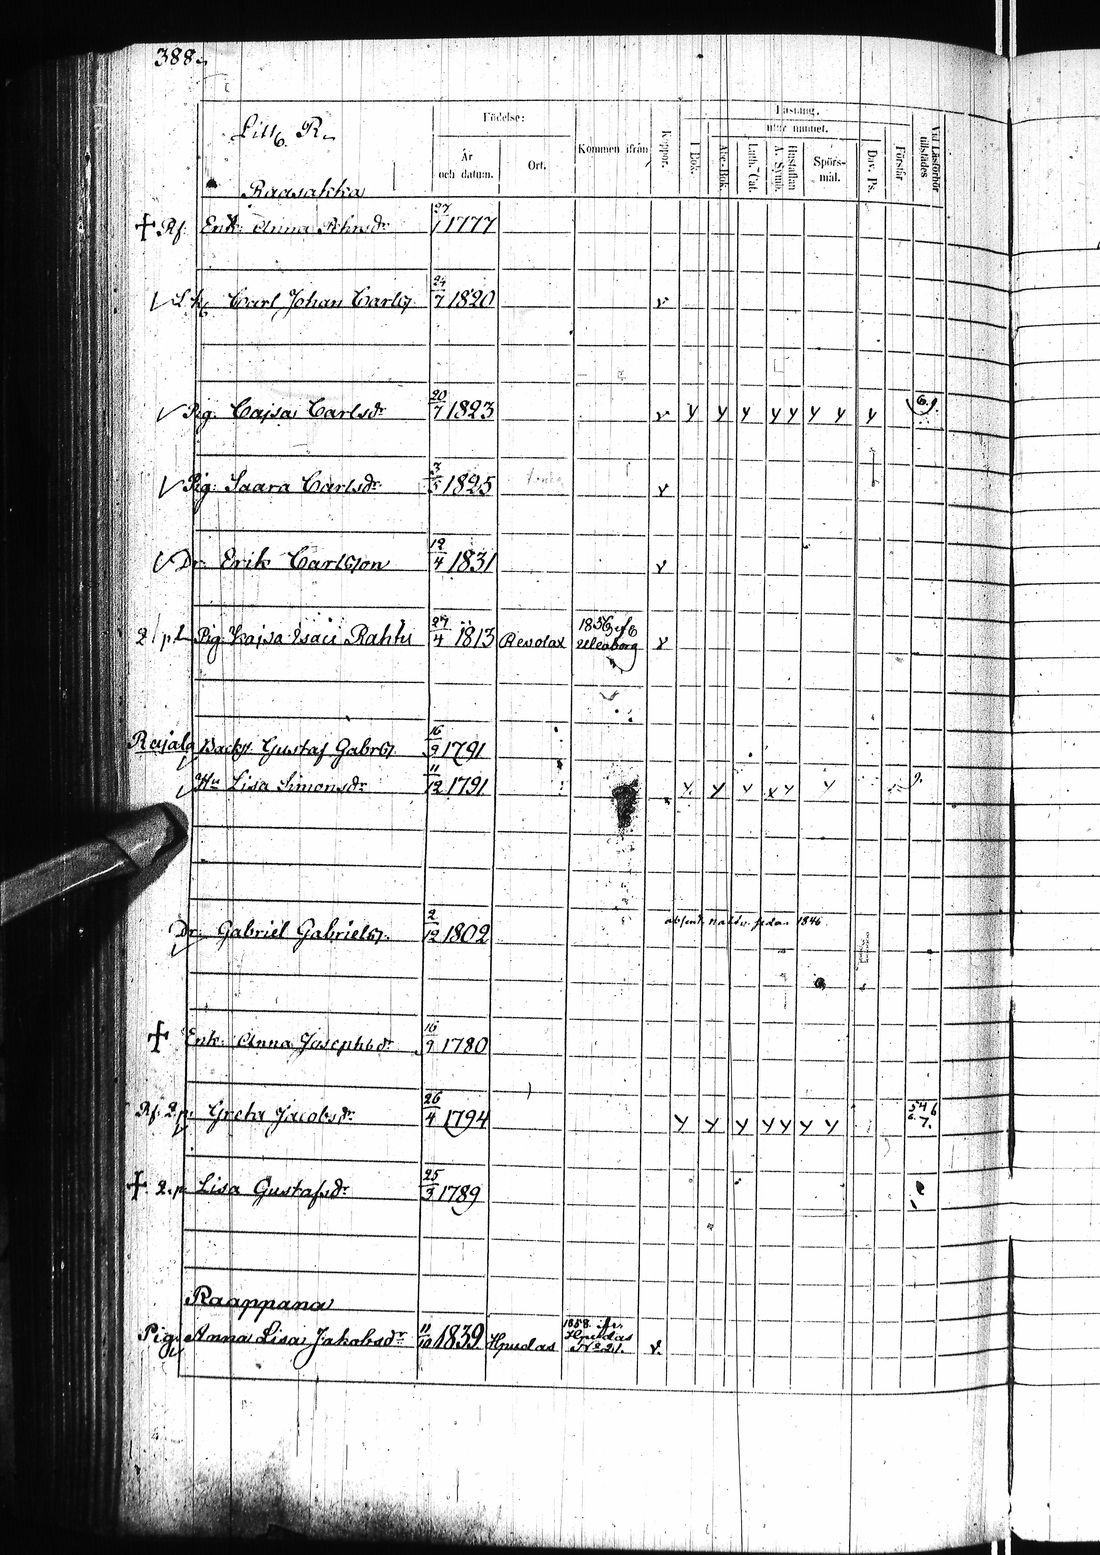 388.
Litt. R.
Födelse:
År och datum.
Ort.
Kommen ifrån
Koppor.
Läsning,
utur minnet.
I Bok.
Abc-Bok.
Luth. Cat.
Hustaflan A. Symb.
Spörs-mål.
Dav. Ps.
Förstår
Vid Läsförhör tillstädes
Raasakka
+ Rf. Enk. Anna 27/1 1777
Carl Johan Carls. 24/7 1820 v
Pig. Cajsa Carlsdr 20/7 1823 v y y y y y y y y 6.
Pig. Saara Carlsdr 3/5 1825 v
Dr. Erik Carlsson 12/4 1831 v
Pig. Kajsa Esaii Rahtu 4 1813 Revolax 1856 Uleåborg v
Rajala Gustaf Gabrs. 16/9 1791
Hu Lisa Simonsdr 11/12 1791 y y y x y y 9.
Dr. Gabriel Gabriels. 2/12 1802 1846
+ Enk. Anna Josephsdr 16/9 1780
Rf. 2.p. Greta Jacobsdr 26/4 1794 y y y y y y y 7.
+ 2.p. Lisa Gustafsdr 25/3 1789
Raappana
Pig. Anna Lisa Jakobsdr 11/10 1839 Hpudas 1858 fr. Hpudas No 21. v.